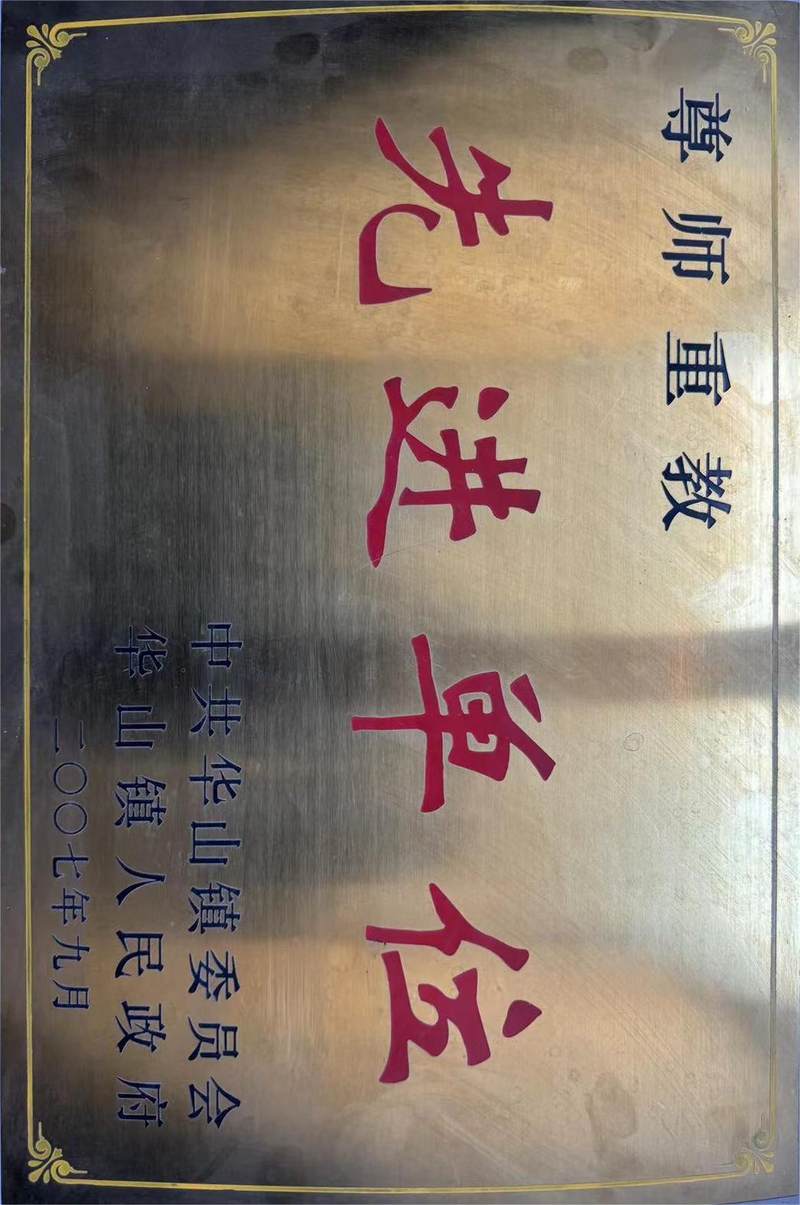 尊师重教
先进单位
中共华山镇委员会
华山镇人民政府
二〇〇七年九月